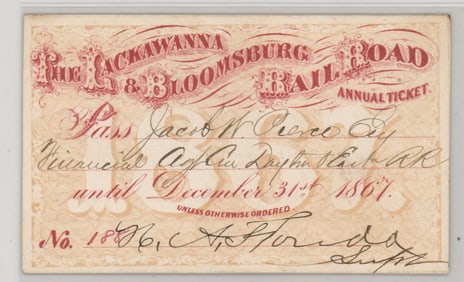 THE LACKAWANNA
& BLOOMSBURG RAIL ROAD
ANNUAL TICKET.
1867
Pass Jacob W Pierce Esq
Financial Ag
until December 31st 1867.
UNLESS OTHERWISE ORDERED
No. 188 A. Fonda
Supt